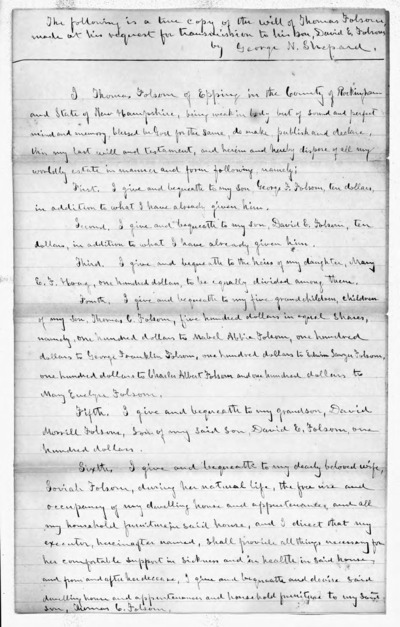 The following is a true copy of the will of Thomas Folsom,
made at his request for transmission to his Son, David E. Folsom
by George N. Shepard.
I Thomas Folsom of Epping in the County of Rockingham
and State of New Hampshire, being weak in body but of sound and perfect
mind and memory, blessed be God for the same, do make publish and declare,
this my last will and testament, and herein and hereby dispose of all my
worldly estate in manner and form following, namely;
First. I give and bequeath to my son George F. Folsom, ten dollars,
in addition to what I have already given him.
Second. I give and bequeath to my son, David E. Folsom, ten
dollars, in addition to what I have already given him.
Third. I give and bequeath to the heirs of my daughter, Mary
E. F. Hoag, one hundred dollars, to be equally divided among them.
Fourth, I give and bequeath to my five grandchildren, children
of my son, Thomas C. Folsom, five hundred dollars in equal shares,
namely, one hundred dollars to Mabel Abbie Folsom, one hundred
dollars to George Franklin Folsom, one hundred dollars to Edwin Folsom,
one hundred dollars to Charles Albert Folsom and one hundred dollars to
May Evelyn Folsom.
Fifth. I give and bequeath to my grandson, David
Morrill Folsom, Son of my said Son, David E. Folsom, one
hundred dollars.
Sixth. I give and bequeath to my dearly beloved wife,
Folsom, during her natural life, the free use and
occupancy of my dwelling house and appurtenances, and all
my household furniture in said house, and I direct that my
executor, hereinafter named, shall provide all things necessary for
her comfortable support in sickness and in health in said house,
and from and after her decease, I give and bequeath and devise said
dwelling house and appurtenances and household furniture to my said
son, Thomas C. Folsom.